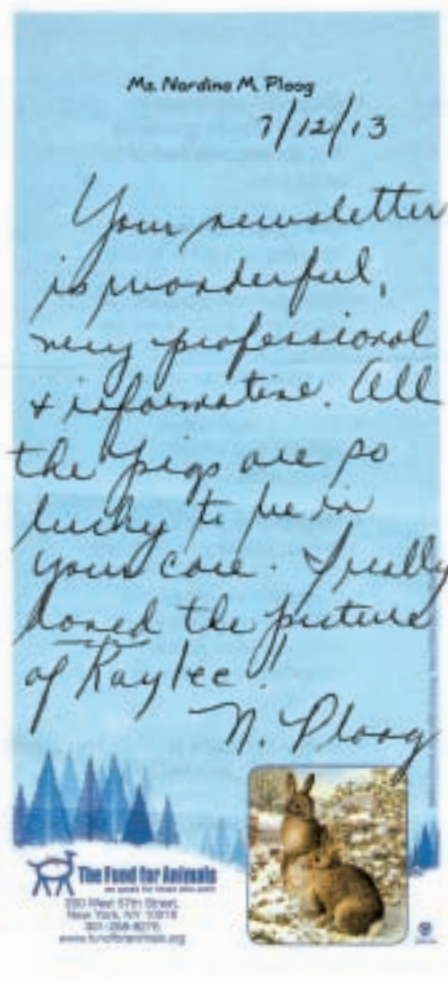 Ms. Nordina M. Ploog
7/12/13
Your newsletter
is wonderful,
very professional
& informative. All
the pigs are so
lucky to be in
your care. I really
loved the picture
of Kaylee!!
N. Ploog
The Fund for Animals
we speak for those who can't
200 West 57th Street,
New York, NY 10019
www.fundforanimals.org